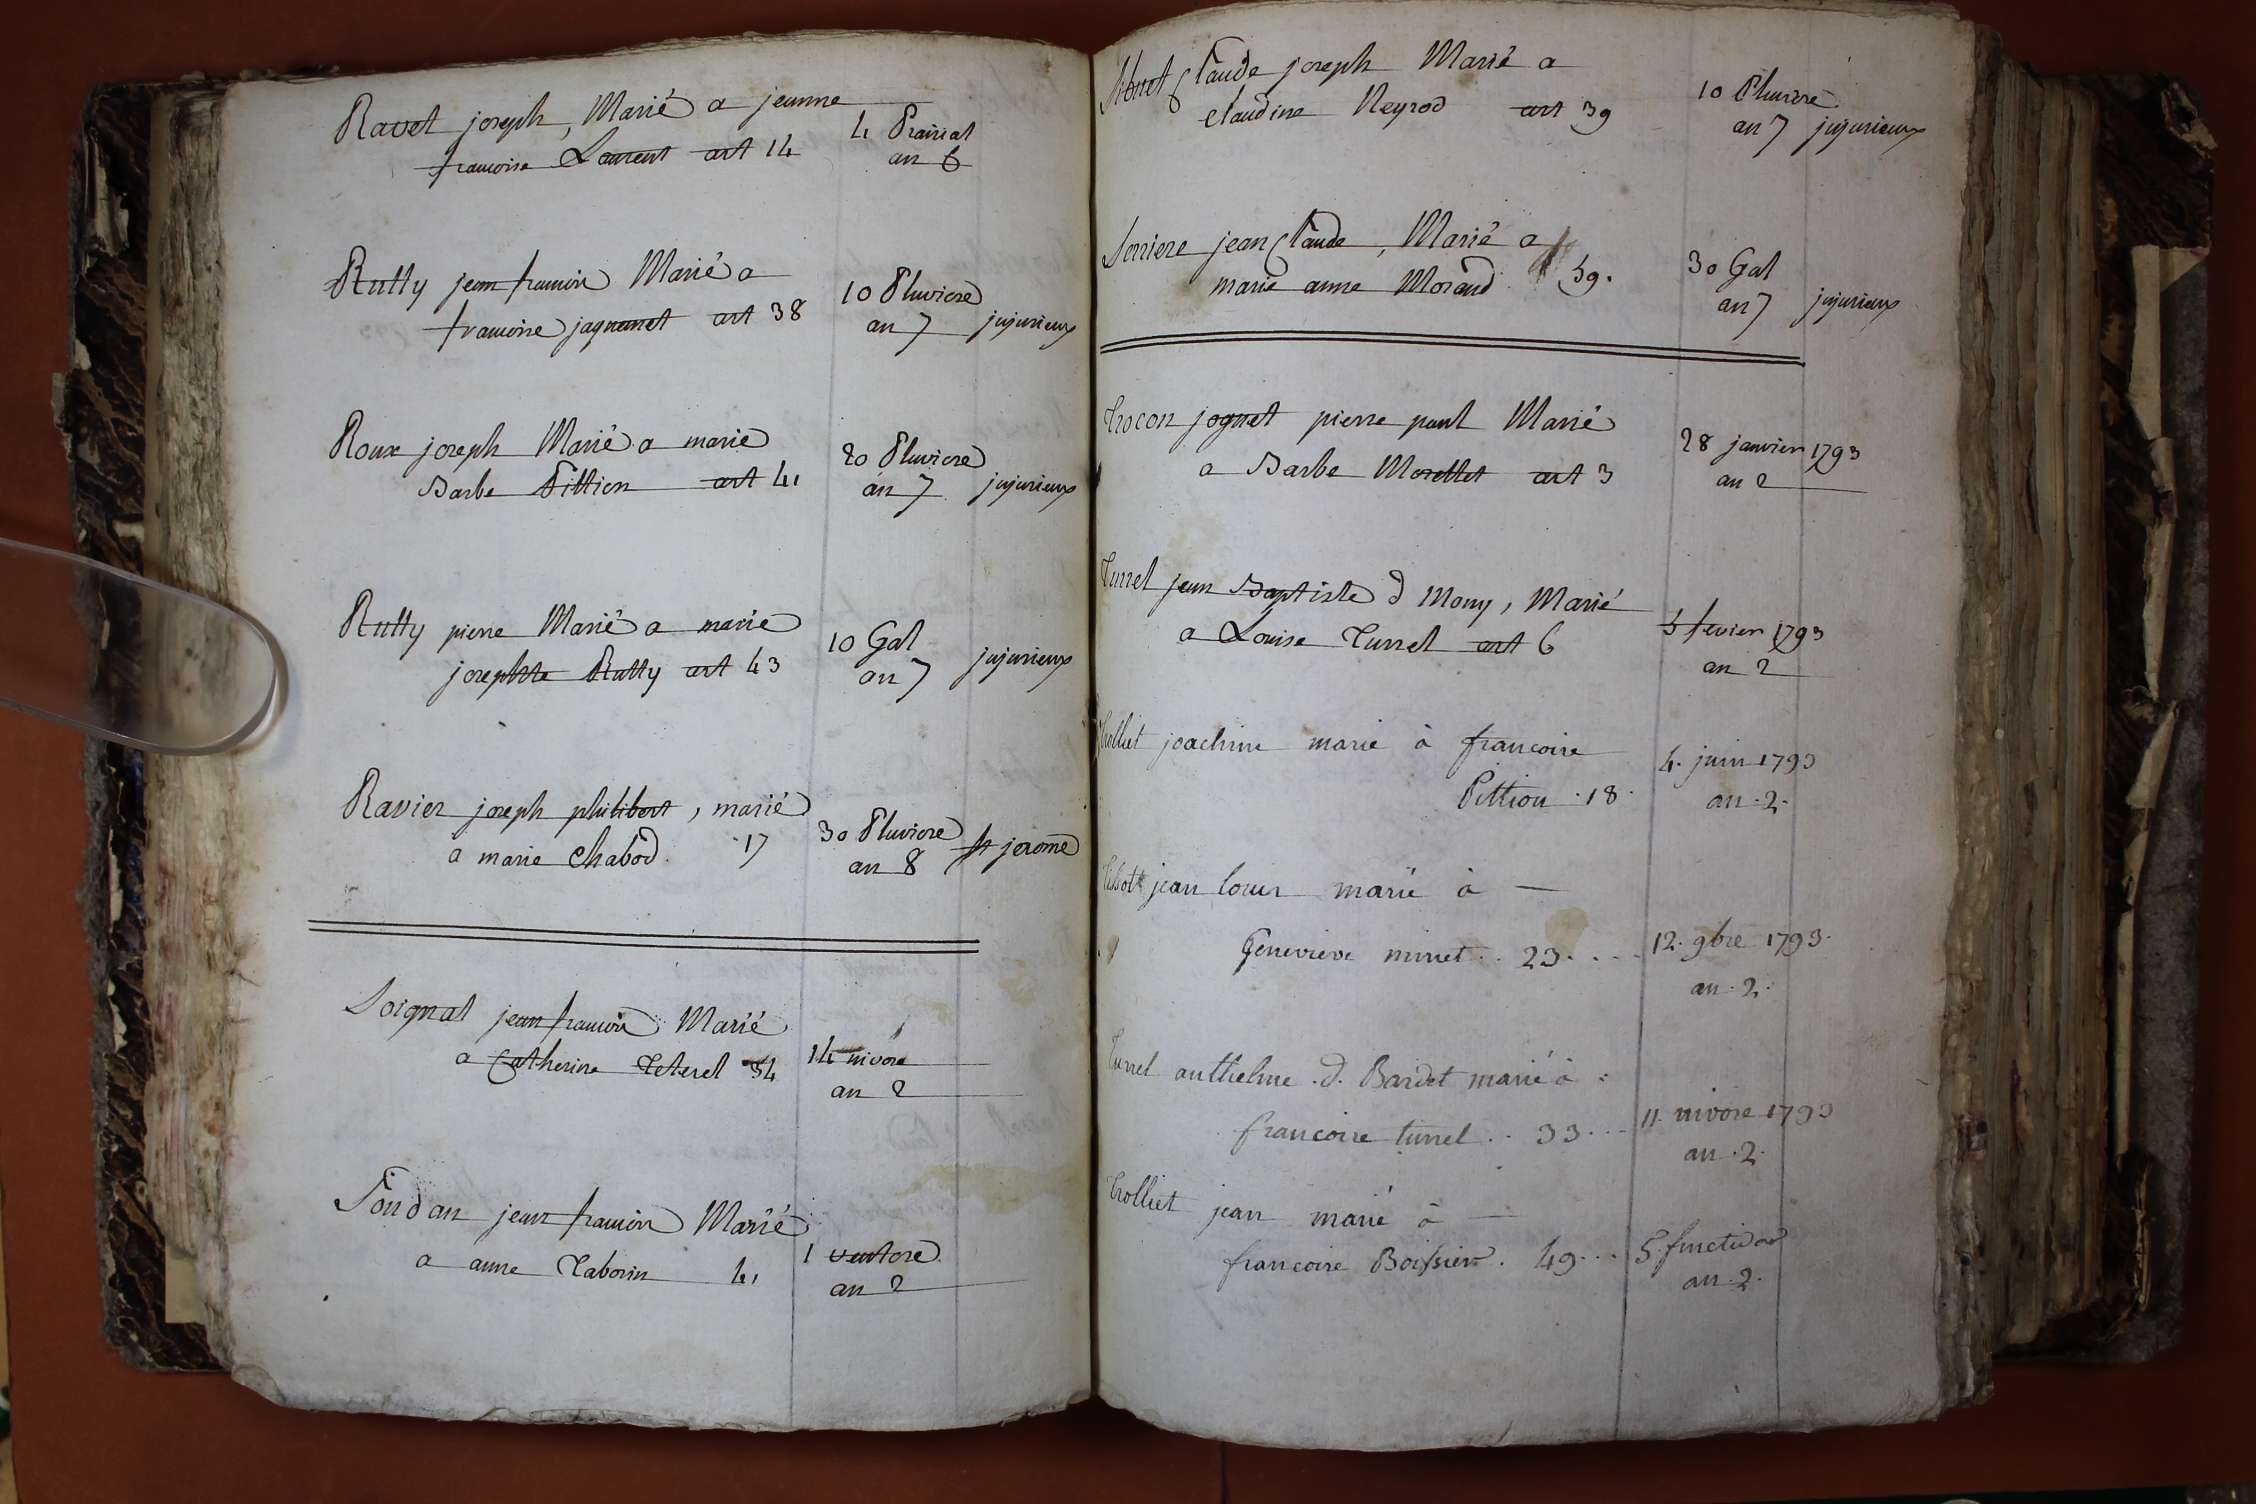 Ravet joseph, Marié a jeanne
francoise Laurent art 14
4 Prairial
an 6
Rutty jean francois Marié a
francoise jaquemet art 38
10 Pluviose
an 7 jujurieux
Roux joseph Marié a marie
Barbe Pittion art 41
20 Pluviose
an 7 jujurieux
Rutty pierre Marié a marie
josephte Rutty art 43
10 Gal
an 7 jujurieux
Ravier joseph philibert, marié
a marie Chabod. 17
30 Pluviose
an 8 St jerome
Soignat jean francois Marié
a Catherine Teteret 34
14 nivose
an 2
Sondan jean francois Marié
a anne Taborin 41
1 ventose
an 2
Claude joseph Marié a
claudine Neyrod art 39
10 Pluviose
an 7 jujurieux
Sorriere jean Claude, Marié a
marie anne Morand 59.
30 Gal
an 7 jujurieux
Trocon jognet pierre paul Marié
a Barbe Morellet art 3
28 janvier 1793
an 2
Turrel jean Baptiste d Mony, Marié
a Louise Turrel art 6
5 fevrier 1793
an 2
Trolliet joachim marié à francoise
Pittion . 18.
4. juin 1793
an . 2.
jean louis marié à —
Genevieve minet . . 23. . . .
12. 9bre 1793.
an . 2.
Turrel anthelme . d. Bardet marié à :
francoise turrel . . 33. . .
11. nivose 1793
an . 2.
Trolliet jean marié à —
francoise Boissier . 49. . .
5. fructidor
an . 2.